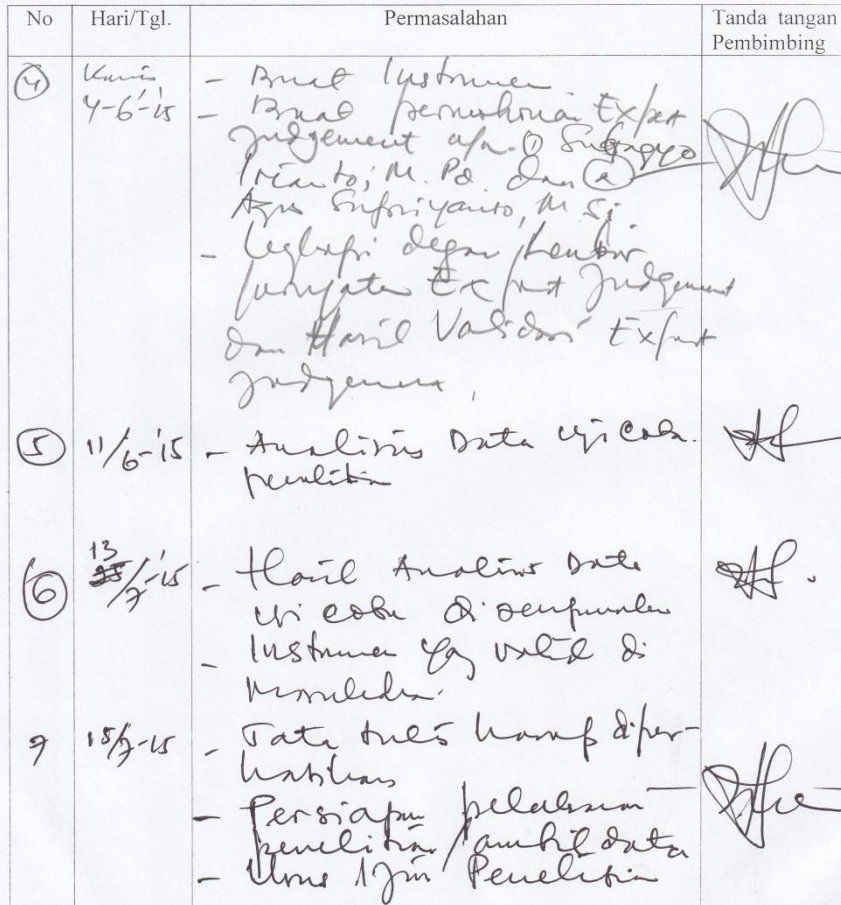 No Hari/Tgl. Permasalahan Tanda tangan
Pembimbing
4 Kamis - Buat Instrumen
4-6-'15 - Buat permohonan Expert
Judgement
M.Pd dan 2
Agus Supriyanto, M.Si
- Lengkapi dengan lembar
Expert Judgement
dan Hasil Validasi Expert
Judgement
5 11/6-'15 - Analisis Data uji coba
penelitian
6 13/7-'15 - Hasil Analisis Data
uji coba disempurnakan
- Instrumen yg valid di
7 15/7-15 - Tata tulis harap diper-
hatikan
- Persiapan pelaksanaan
penelitian/ambil data
- Urus Ijin Penelitian